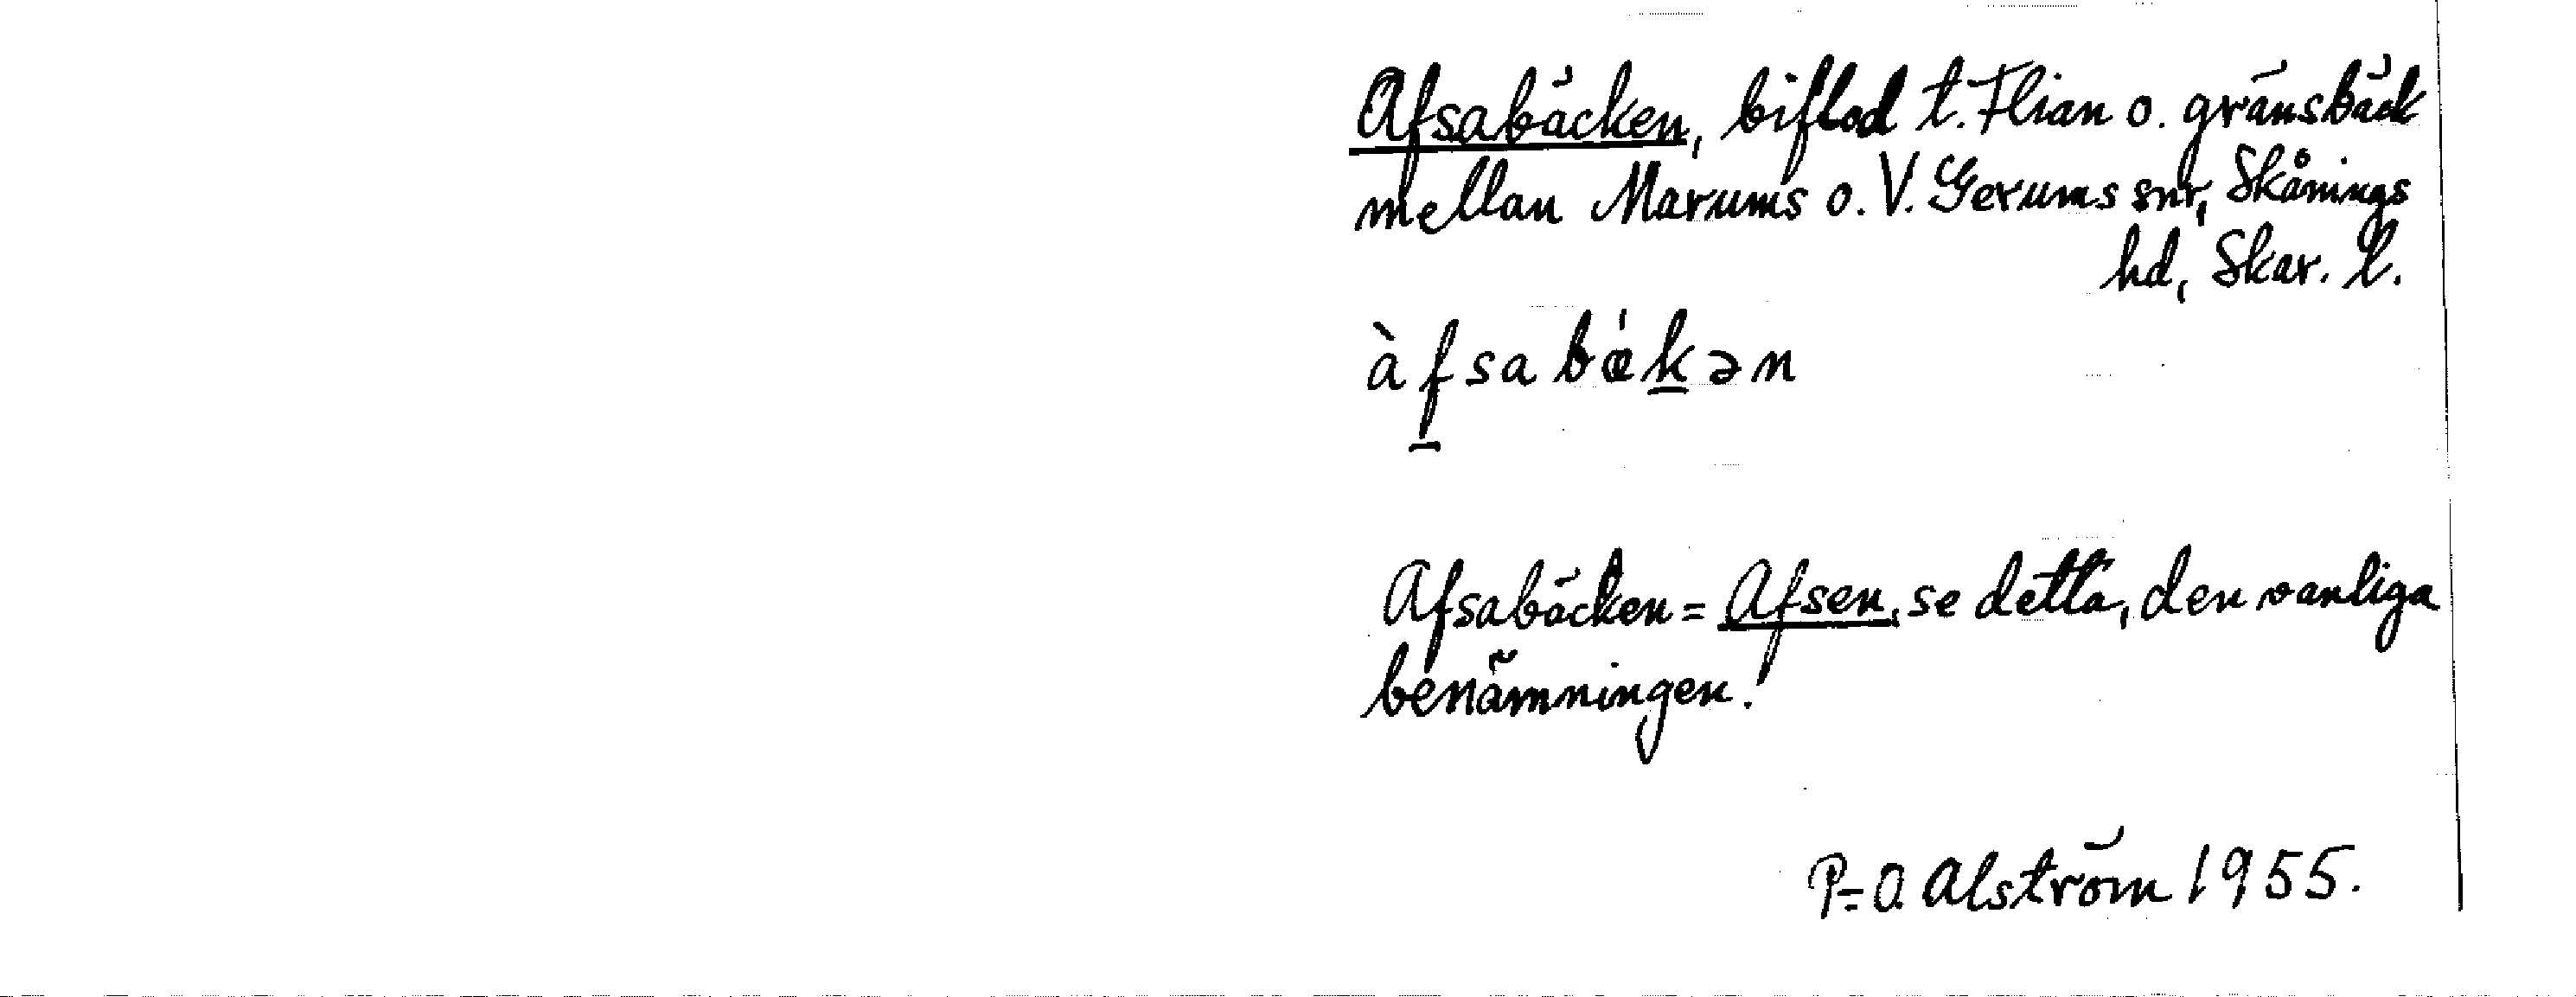 Afsabäcken, biflod t. Flian o. gränsbäck
mellan Marums o. V. Gerums snr, Skånings
hd, Skar. l.
àfsabæ̍kən
Afsabäcken = Afsen, se detta, den vanliga
benämningen.
P.-O. Alström 1955.